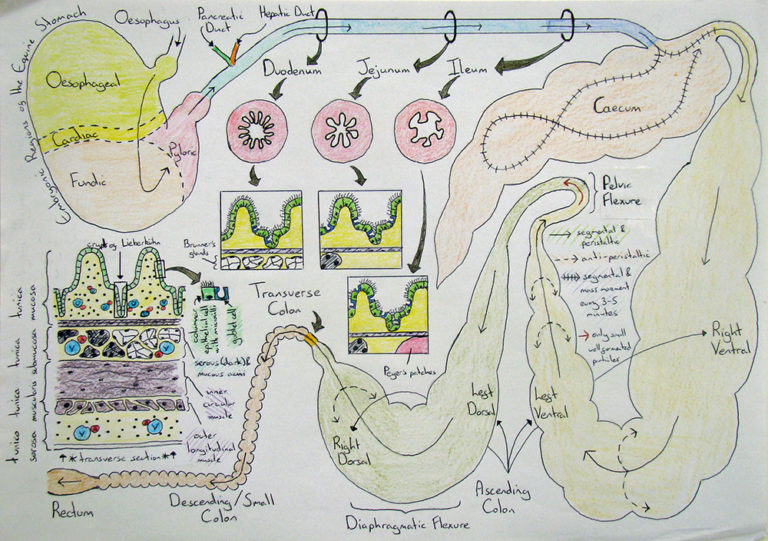 Embryonic Regions of the Equine Stomach
Oesophagus
Pancreatic
Duct
Hepatic Duct
Oesophageal
Cardiac
Pyloric
Fundic
Duodenum
Jejunum
Ileum
Caecum
Pelvic
Flexure
segmental &
peristaltic
anti-peristaltic
segmental &
mass movement
every 3-5
minutes
only small
well fermented
particles
Right
Ventral
Brunner's
glands
crypt of Lieberkühn
columnar
epithelial cell
with microvilli
goblet cell
serous (dark) &
mucous acini
inner
circular
muscle
outer
longitudinal
muscle
tunica
mucosa
tunica
submucosa
tunica
muscularis
tunica
serosa
V
V
V
V
*transverse section*
Transverse
Colon
Peyer's patches
Left
Dorsal
Left
Ventral
Right
Dorsal
Ascending
Colon
Diaphragmatic Flexure
Descending/Small
Colon
Rectum